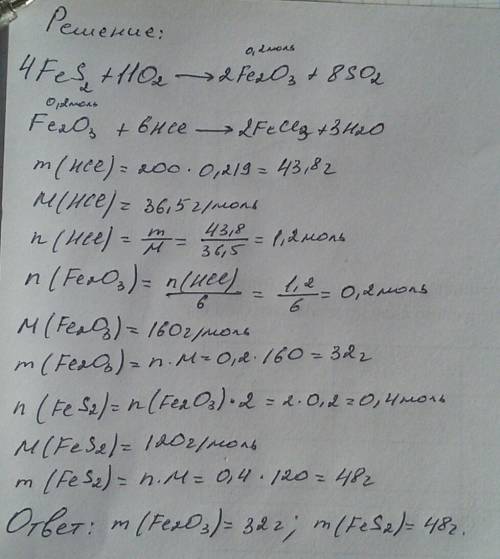 Решение:
0,2моль
4FeS₂ + 11O₂ → 2Fe₂O₃ + 8SO₂
0,2моль
Fe₂O₃ + 6HCl → 2FeCl₃ + 3H₂O
m(HCl) = 200 · 0,219 = 43,8г
M(HCl) = 36,5г/моль
n(HCl) = m/M = 43,8/36,5 = 1,2моль
n(Fe₂O₃) = n(HCl)/6 = 1,2/6 = 0,2моль
M(Fe₂O₃) = 160г/моль
m(Fe₂O₃) = n·M = 0,2·160 = 32г
n(FeS₂) = n(Fe₂O₃)·2 = 2·0,2 = 0,4моль
M(FeS₂) = 120г/моль
m(FeS₂) = n·M = 0,4·120 = 48г
Ответ: m(Fe₂O₃) = 32г; m(FeS₂) = 48г.